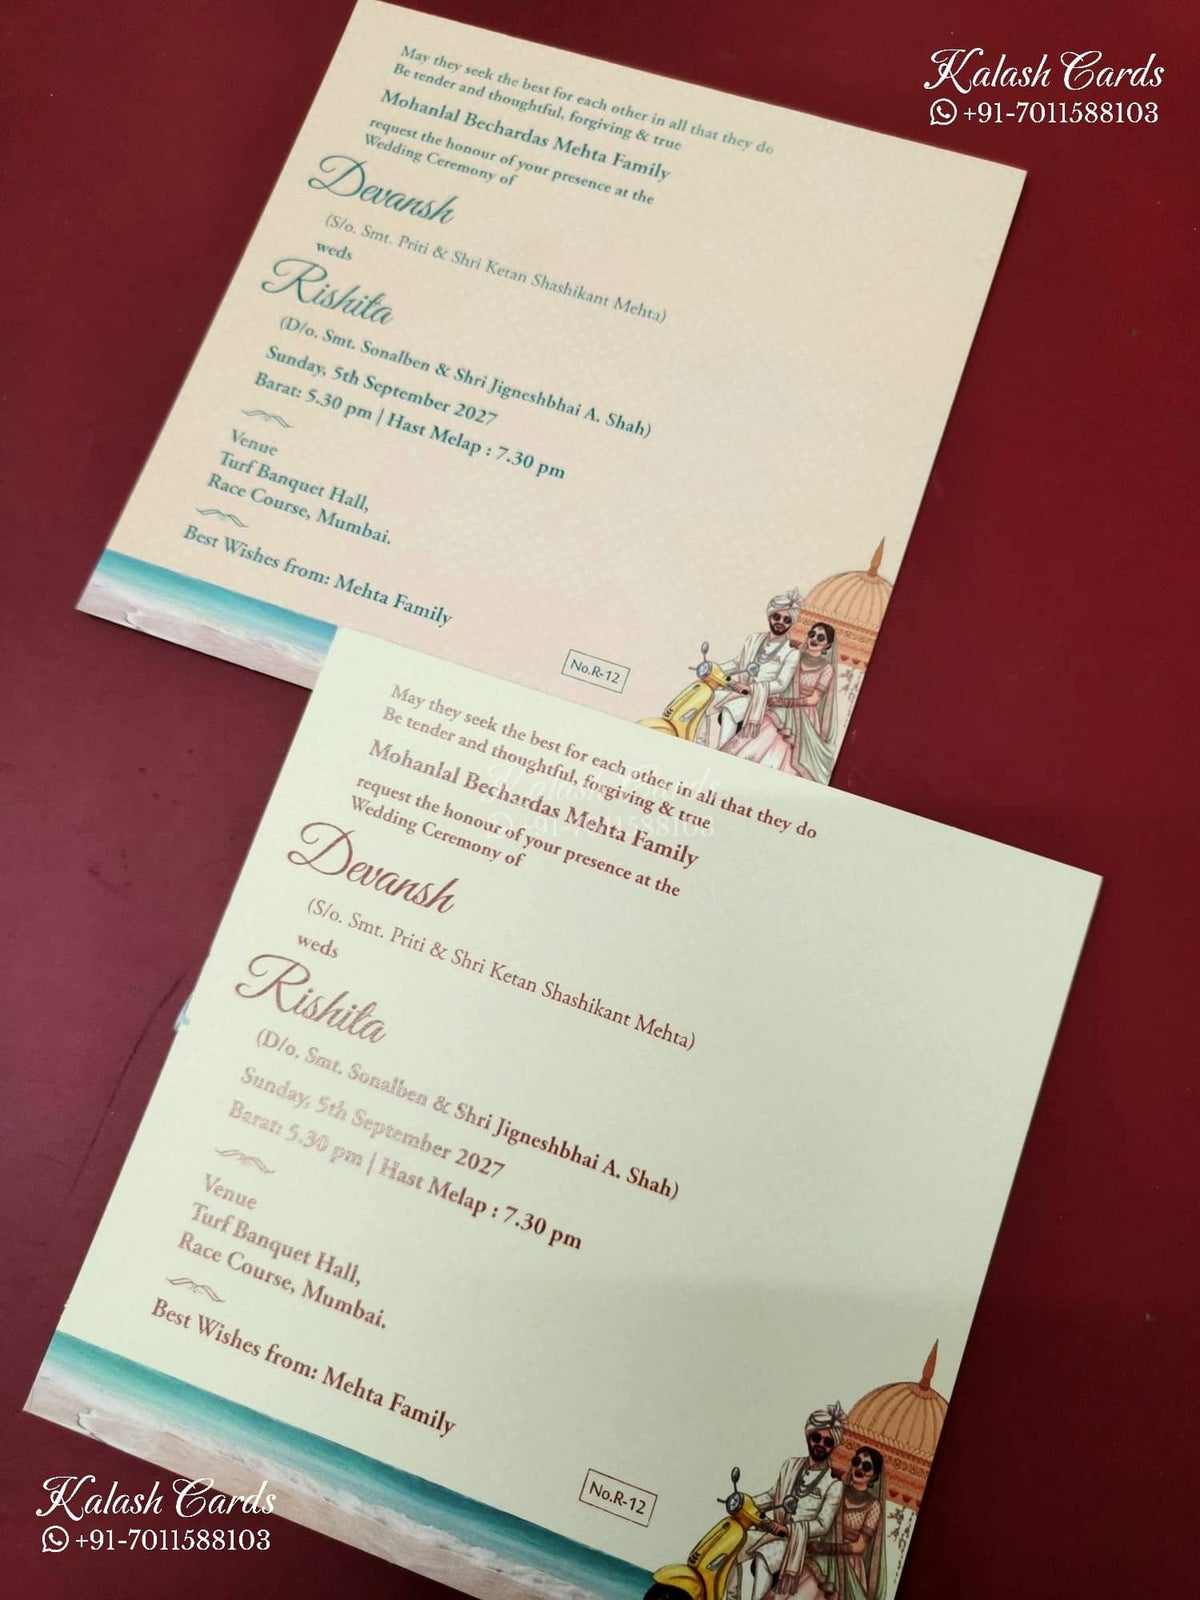 Kalash Cards
+91-7011588103
May they seek the best for each other in all that they do
Be tender and thoughtful, forgiving & true
Mohanlal Bechardas Mehta Family
request the honour of your presence at the
Wedding Ceremony of
Devansh
(S/o. Smt. Priti & Shri Ketan Shashikant Mehta)
weds
Rishita
(D/o. Smt. Sonalben & Shri Jigneshbhai A. Shah)
Sunday, 5th September 2027
Barat: 5.30 pm | Hast Melap : 7.30 pm
Venue
Turf Banquet Hall,
Race Course, Mumbai.
Best Wishes from: Mehta Family
No.R-12
May they seek the best for each other in all that they do
Be tender and thoughtful, forgiving & true
Mohanlal Bechardas Mehta Family
request the honour of your presence at the
Wedding Ceremony of
Kalash Cards
+91-7011588103
Devansh
(S/o. Smt. Priti & Shri Ketan Shashikant Mehta)
weds
Rishita
(D/o. Smt. Sonalben & Shri Jigneshbhai A. Shah)
Sunday, 5th September 2027
Barat: 5.30 pm | Hast Melap : 7.30 pm
Venue
Turf Banquet Hall,
Race Course, Mumbai.
Best Wishes from: Mehta Family
No.R-12
Kalash Cards
+91-7011588103